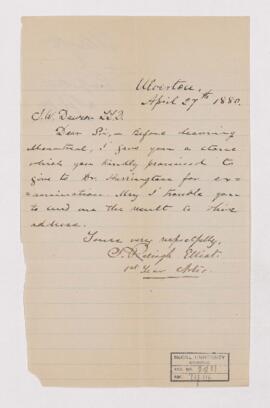 Ulverton,
April 27th 1880.
J. W. Dawson LL.D.
Dear Sir, - Before leaving
Montreal, I gave you a stone
which you kindly promised to
give to Dr. Harrington for ex-
amination. May I trouble you
to send me the result to above
address.
Yours very respectfully,
Elliot.
1st Year Arts.
McGILL UNIVERSITY
ARCHIVES
ACC. NO.
REF.